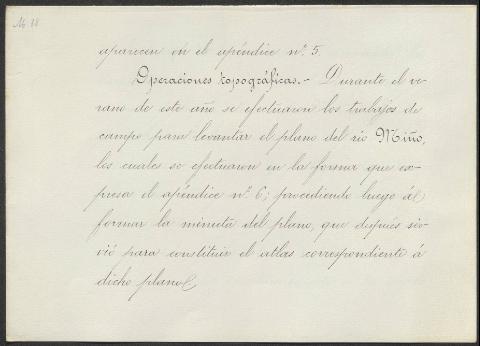 M 88
aparecen en el apéndice n.º 5.
Operaciones topográficas.- Durante el ve-
rano de este año se efectuaron los trabajos de
campo para levantar el plano del río Miño,
los cuales se efectuaron en la forma que ex-
presa el apéndice n.º 6; procediendo luego á
formar la minuta del plano, que después sir-
vió para constituir el atlas correspondiente á
dicho plano